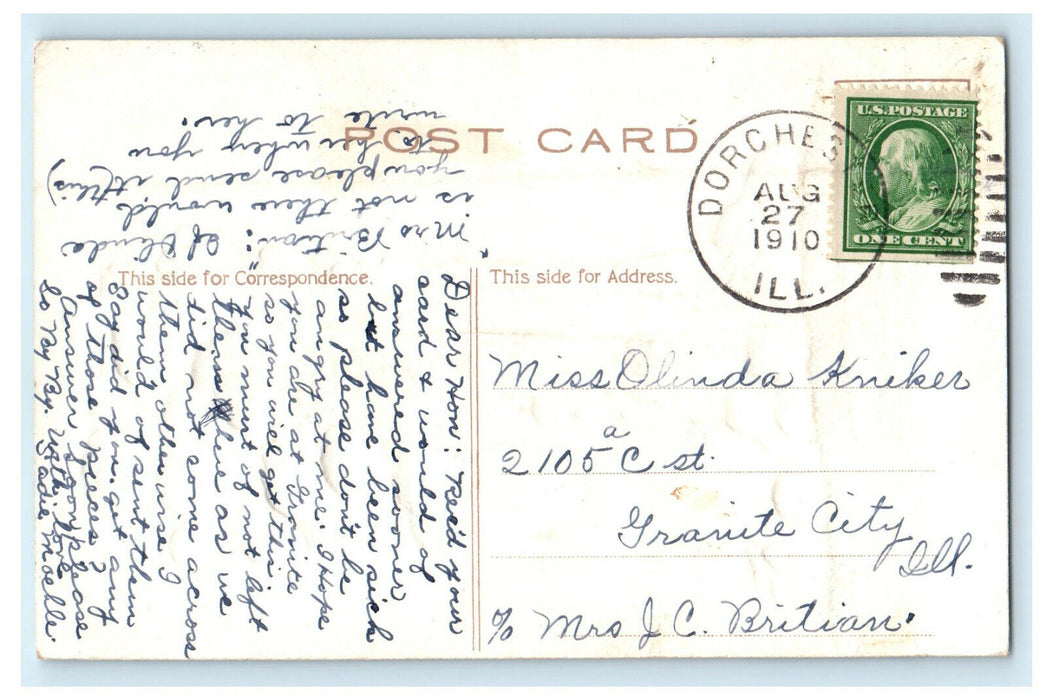 POST CARD
This side for Correspondence.
This side for Address.
DORCHES
AUG
27
1910
ILL.
U.S. POSTAGE
ONE CENT
Miss Olinda Kniker
2105 a C st.
Granite City
Ill.
c/o Mrs J C. Britian.
Dear Hon: Rec'd your
card & would of
answered sooner
but have been sick
so please don't be
angry at me. I Hope
you are at Granite
so you will get this
you must of not left
them there as we
did not come across
them other wise I
would of sent them
Say did you get any
of those pieces?
Answer soon please
So By By. With love
Sadie Moelle.
"Mrs Britian": If Olinda
is not there would
you please send it (this)
to her when you
write to her.